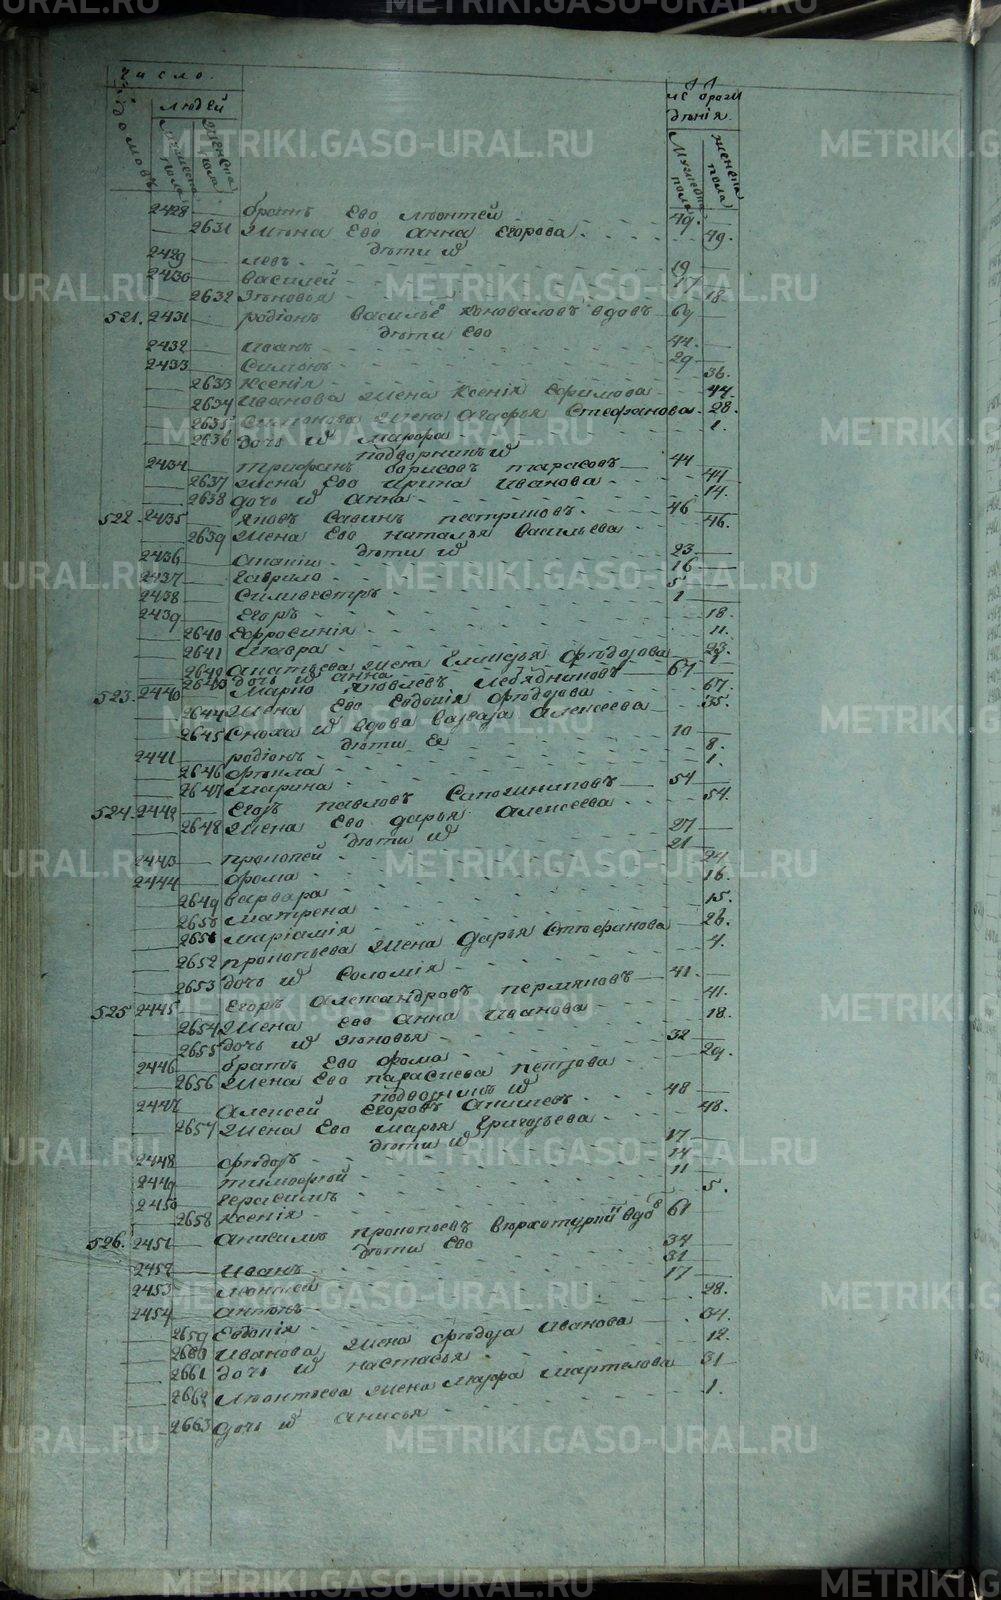 число.
домовъ
людей
мужеска пола
женска пола
дѣнія.
мужеска пола
женска пола
2428 братъ Ево леонтей 49.
2631 жена Ево анна Егорова. 49.
дѣти и͠
2429 левъ 19
2430 василей 17
2632 зѣновья 18
521. 2431 родіонъ василье коноваловъ вдовъ 69
дѣти ево
2432 иванъ 44.
2433 Симіонъ 29
2633 Ксенія 36.
2634 иванова жена Ксенія Ефимова 44.
2635 симіонова жена агафья Стефанова 28.
2636 дочь и͠ мавра 1.
подворникъ и͠
2434 трифанъ борисовъ тарасовъ 44
2637 жена Ево ирина иванова 44
2638 дочь и͠ анна 14.
522. 2435 яковъ Савинъ пестриковъ. 46
2639 жена Ево наталья васильева 46.
дѣти и͠
2436 23
2437 гаврило 16
2438 Силивестръ 5
2439 Егоръ 1
2640 Ефросинія 18.
2641 мавра 11.
2642 жена гликерья федорова 23.
2643 дочь и͠ анна
523. 2440 марко яковлевъ лебядкиновъ 67
2644 жена Ево Евдокія федорова 67.
2645 сноха и͠ вдова варвара алексеева 35.
дѣти Ея
2441 родіонъ 10
2646 фекла 8.
2647 марина 1.
524. 2442 Егоръ павловъ Сапожниковъ 54
2648 жена Ево дарья алексеева 54.
дѣти и͠
2443 прокопей 27
2444 фома 21
2649 варвара 24.
2650 матрена 16.
2651 маріамія 15.
2652 прокопьева жена дарья Стефанова 26.
2653 дочь и͠ Соломія 4.
525 2445 Егоръ александровъ пермяковъ 41.
2654 жена ево анна иванова 41.
2655 дочь и͠ зѣновья 18.
2446 братъ Ево фома 32
2656 жена Ево параскева петрова 29.
подворникъ и͠
2447 алексей Егоровъ 48
2657 жена Ево марья григорьева 48.
дѣти и͠
2448 федоръ 17
2449 тимофей 14
2450 герасимъ 11
2658 Ксенія 5.
526. 2451 анисимъ прокопьевъ верхотурцовъ вдов 61
дѣти Ево
2452 иванъ 34
2453 леонтей 31
2454 антонъ 17
2659 Евдокія 28.
2660 иванова жена федора иванова 34.
2661 дочь и͠ настасья 12.
2662 леонтьева жена мавра мартелова 31
2663 дочь и͠ анисья 1.
METRIKI.GASO-URAL.RU